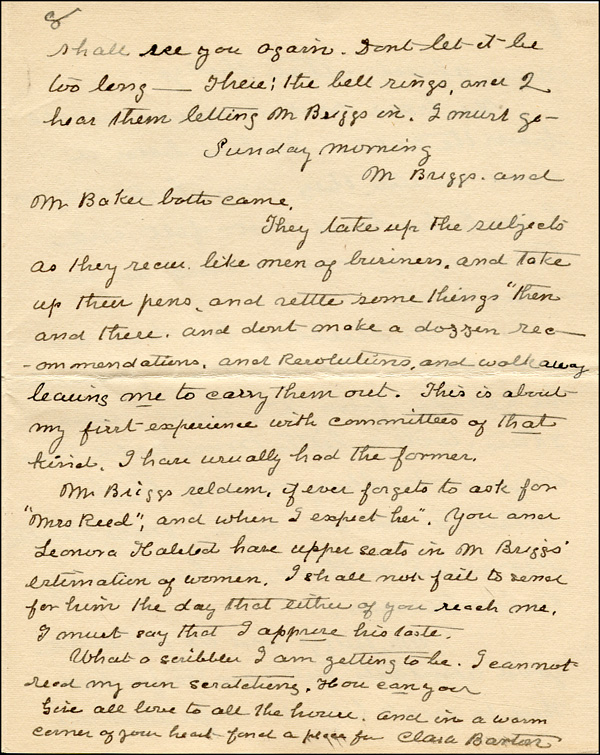 8
shall see you again. Dont let it be
too long — There; the bell rings, and I
hear them letting Mr Briggs in. I must go —
Sunday morning
Mr Briggs. and
Mr Baker both came.
They take up the subjects
as they recur. like men of business. and take
up their pens, and settle some things "then
and there. and dont make a dozzen rec–
-ommendations, and Resolutions, and walk away
leaving me to carry them out. This is about
my first experience with committees of that
kind. I have usually had the former.
Mr Briggs seldom, if ever forgets to ask for
"Mrs Reed", and when I expect her". You and
Leonora Halsted have upper seats in Mr Briggs'
estimation of women. I shall not fail to send
for him the day that either of you reach me.
I must say that I approve his taste.
What a scribbler I am getting to be. I cannot
read my own scratching. How can you
Give all love to all the house. and in a warm
corner of your heart find a place for Clara Barton